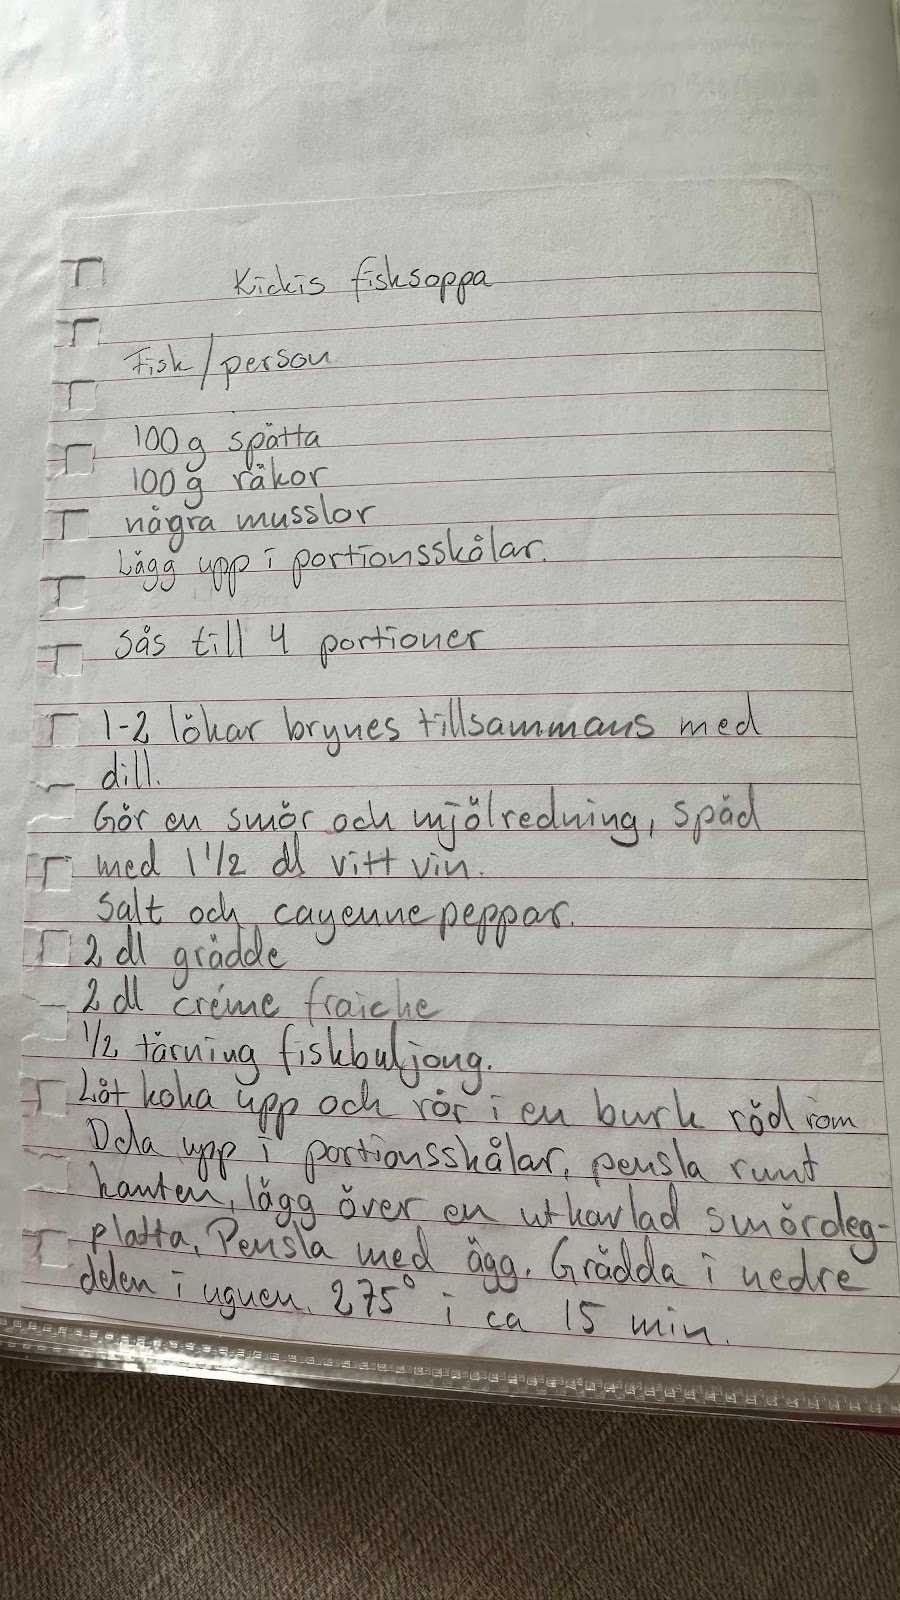 Kickis fisksoppa
Fisk/person
100 g spätta
100 g räkor
några musslor
Lägg upp i portionsskålar.
Sås till 4 portioner
1-2 lökar brynes tillsammans med
dill.
Gör en smör och mjölredning, späd
med 1 1/2 dl vitt vin.
Salt och cayennepeppar.
2 dl grädde
2 dl créme fraiche
1/2 tärning fiskbuljong.
Låt koka upp och rör i en burk röd rom
Dela upp i portionsskålar, pensla runt
kanten, lägg över en utkavlad smördeg-
platta. Pensla med ägg. Grädda i nedre
delen i ugnen. 275° i ca 15 min.